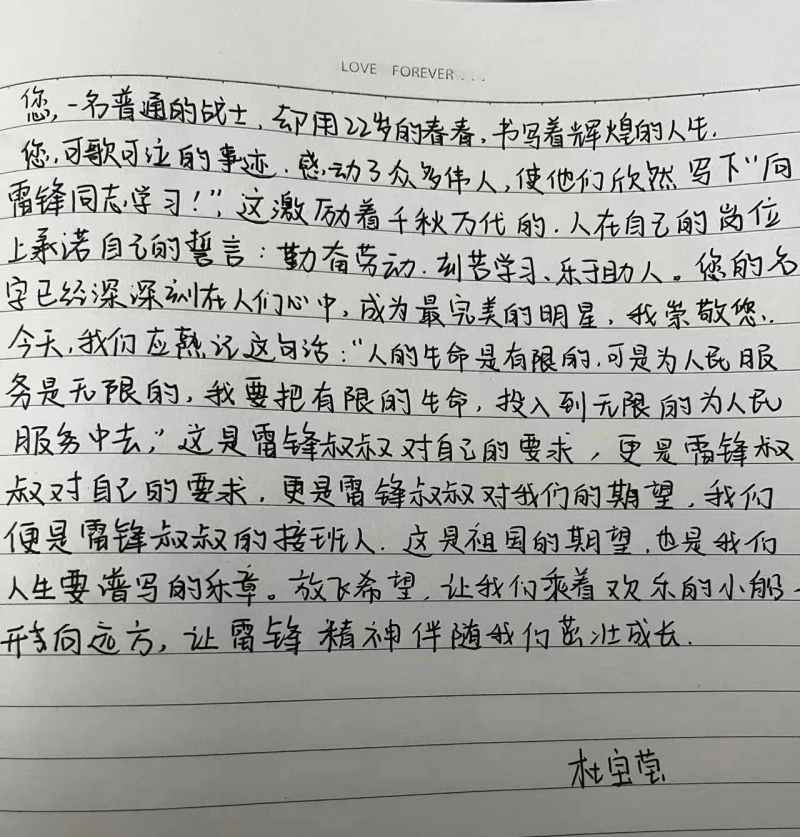 LOVE FOREVER...
您,一名普通的战士,却用22岁的春春,书写着辉煌的人生.
您,可歌可泣的事迹.感动了众多伟人,使他们欣然写下"向
雷锋同志学习!",这激励着千秋万代的.人在自己的岗位
上承诺自己的誓言:勤奋劳动.刻苦学习、乐于助人。您的名
字已经深深刻在人们心中,成为最完美的明星,我崇敬您..
今天,我们应熟记这句话:"人的生命是有限的,可是为人民服
务是无限的,我要把有限的生命,投入到无限的为人民
服务中去,"这是雷锋叔叔对自己的要求,更是雷锋叔
叔对自己的要求,更是雷锋叔叔对我们的期望,我们
便是雷锋叔叔的接班人.这是祖国的期望,也是我们
人生要谱写的乐章。放飞希望,让我们乘着欢乐的小船
开向远方,让雷锋精神伴随我们茁壮成长.
杜宝莹